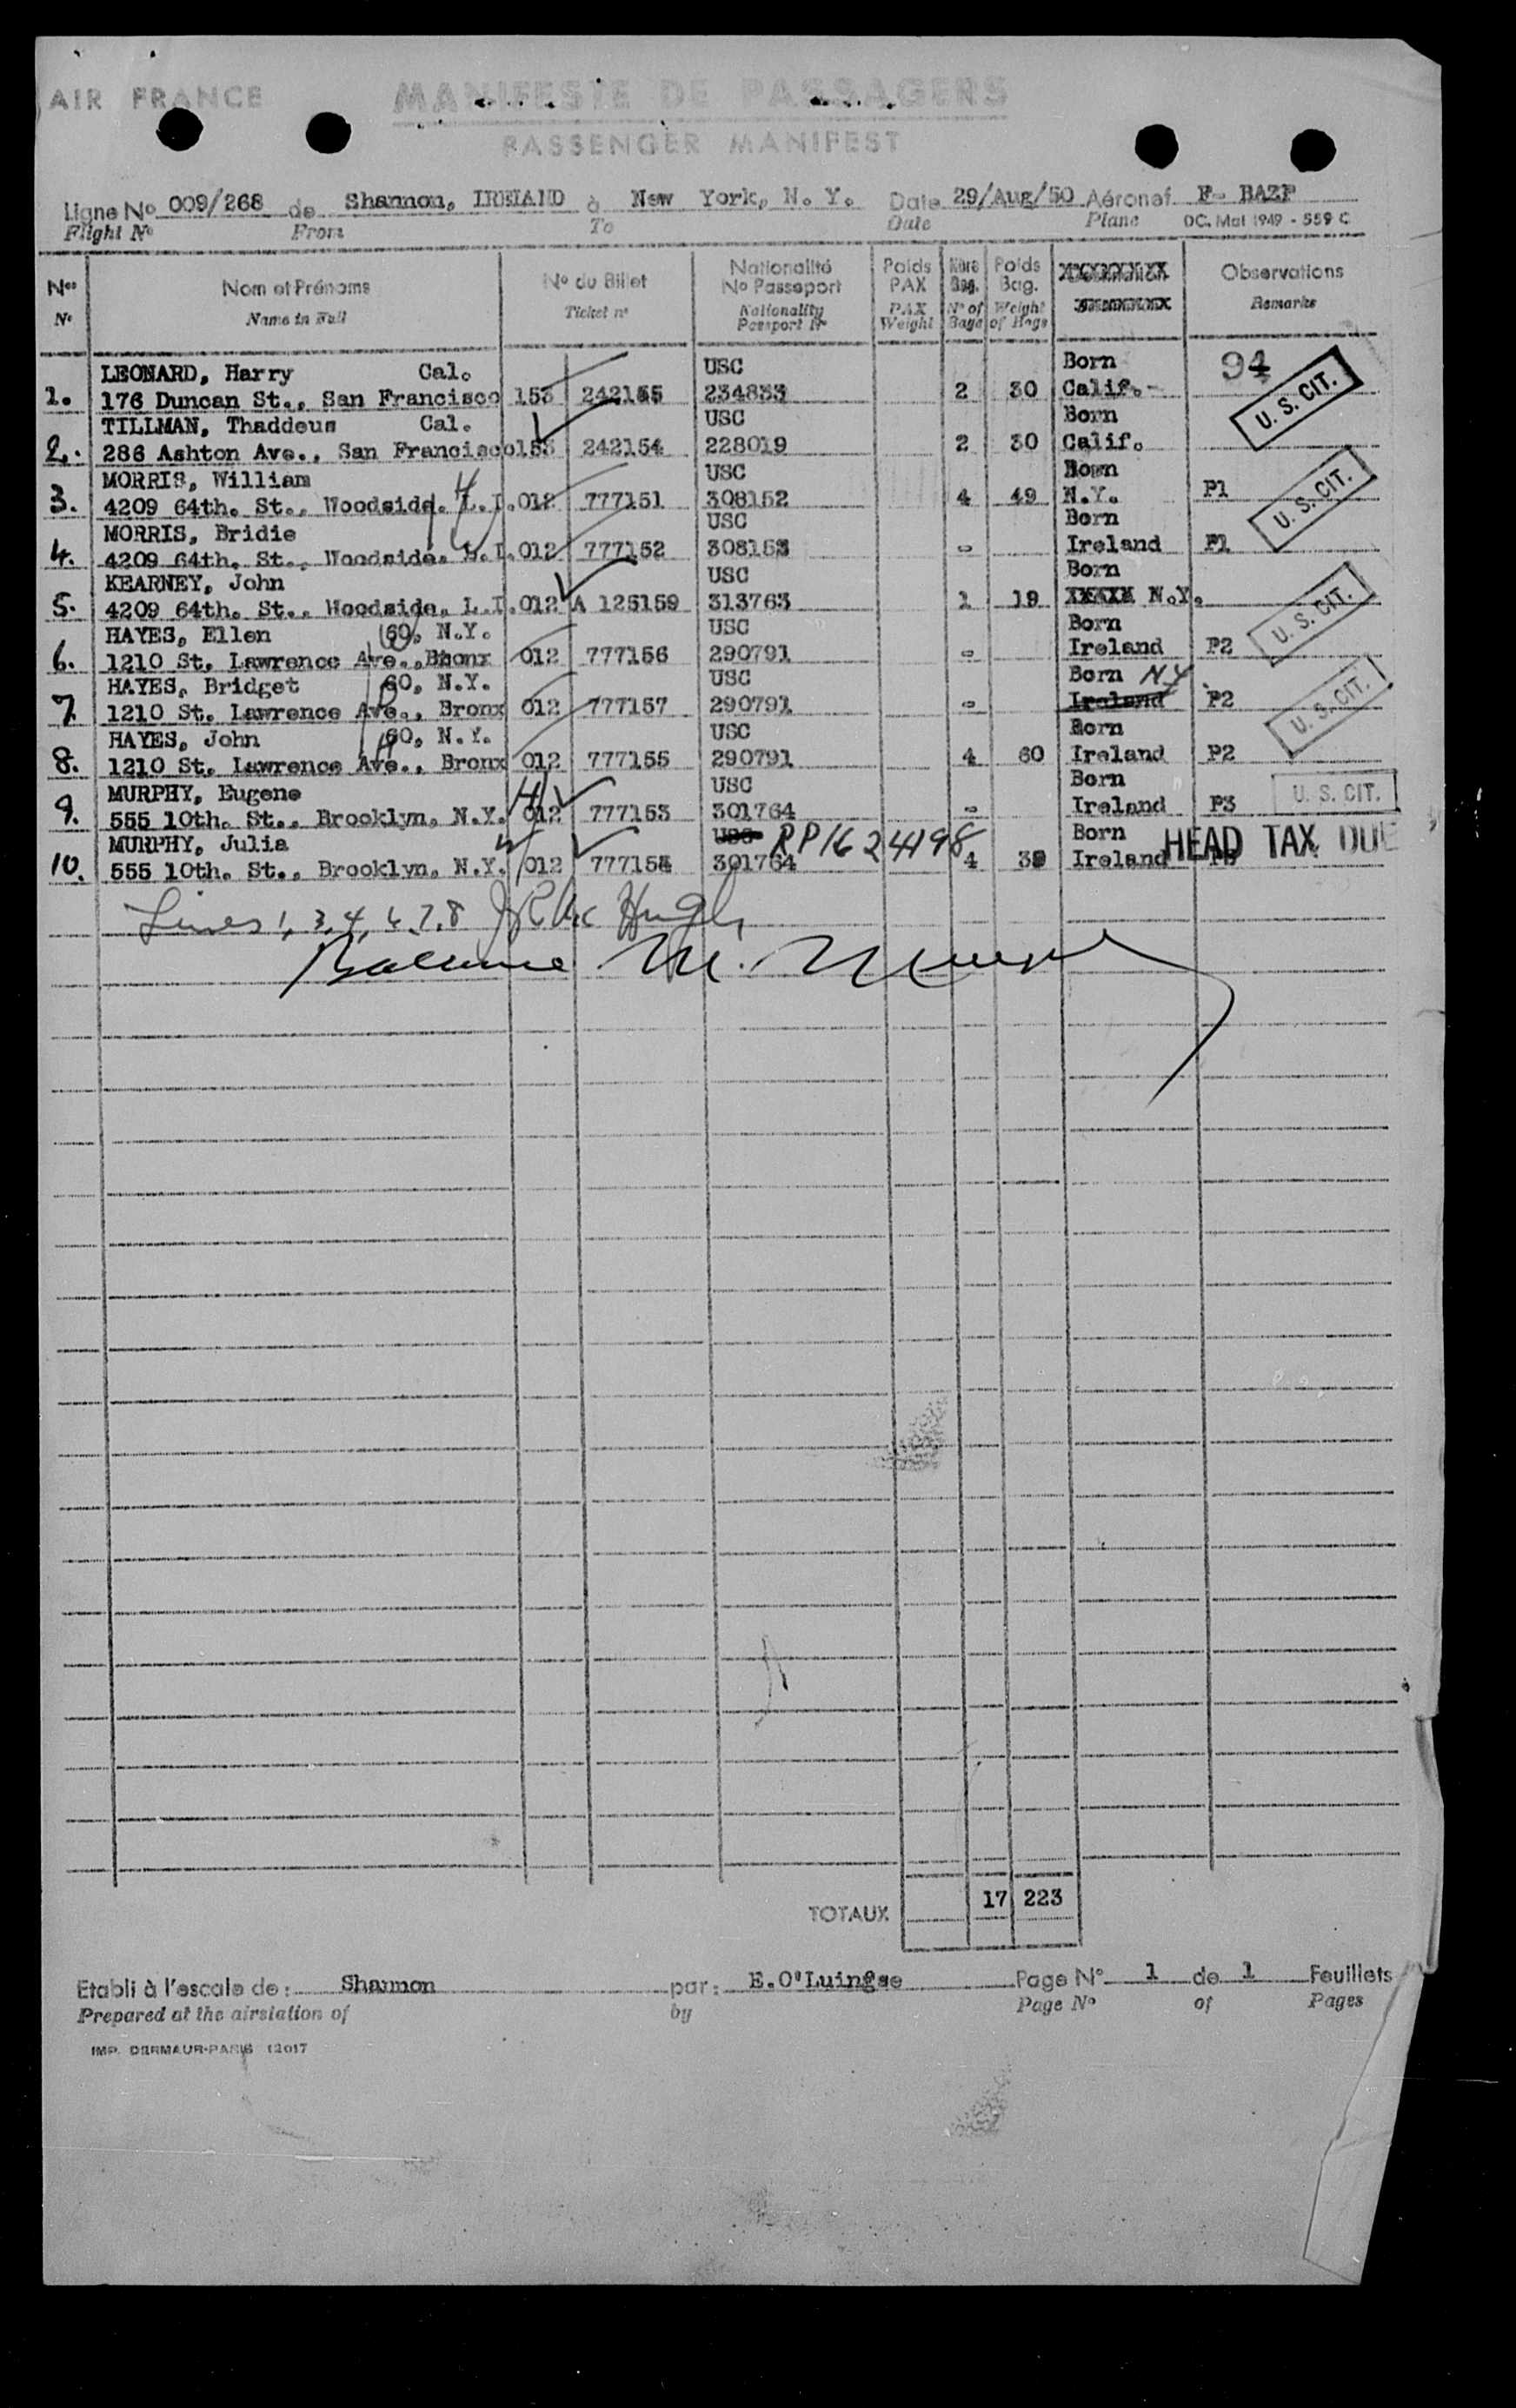 AIR FRANCE
MANIFESTE DE PASSAGERS
PASSENGER MANIFEST
Ligne No 009/268 de Shannon, IRELAND à New York, N. Y. Date 29/Aug/50 Aéronef F- BAZP
Flight No From To Date Plane OC. Mat 1949 - 559 C
Nos Nom et Prénoms No du Billet Nationalité No Passeport Poids PAX Nbre Bag. Poids Bag. Observations
No Name in Full Ticket no Nationality Passport No PAX Weight No of Bags Weight of Bags Remarks
94
LEONARD, Harry Cal. USC Born
1. 176 Duncan St., San Francisco 153 242155 234833 2 30 Calif. U. S. CIT.
TILLMAN, Thaddeus Cal. USC Born
2. 286 Ashton Ave., San Francisco 153 242154 228019 2 30 Calif.
MORRIS, William USC Born
3. 4209 64th. St., Woodside. L.I. 012 777151 308152 4 49 N.Y. P1 U. S. CIT.
MORRIS, Bridie USC Born
4. 4209 64th. St., Woodside. L.I. 012 777152 308153 - Ireland P1
KEARNEY, John USC Born
5. 4209 64th. St., Woodside. L.I. 012 A 125159 313763 1 19 XXXXX N.Y. U. S. CIT.
HAYES, Ellen 60, N.Y. USC Born
6. 1210 St. Lawrence Ave., Bronx 012 777156 290791 - Ireland P2
HAYES, Bridget 60, N.Y. USC Born NY
7. 1210 St. Lawrence Ave., Bronx 012 777157 290791 - Ireland P2 U. S. CIT.
HAYES, John 60, N.Y. USC Born
8. 1210 St. Lawrence Ave., Bronx 012 777155 290791 4 60 Ireland P2
MURPHY, Eugene USC Born
9. 555 10th. St., Brooklyn, N.Y. 012 777153 301764 - Ireland P3 U. S. CIT.
MURPHY, Julia USC RP1624198 Born HEAD TAX DUE
10. 555 10th. St., Brooklyn, N.Y. 012 777154 301764 4 35 Ireland P3
Lines 1, 3, 4, 6, 7, 8
Balance M.
TOTAUX 17 223
Etabli à l'escale de: Shannon par: E.O'Luingse Page No 1 de 1 Feuillets
Prepared at the airstation of by Page No of Pages
IMP. DERMAUR-PARIS 12017